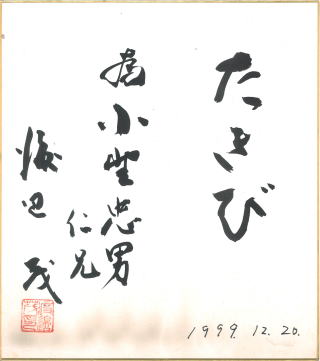 たきび
為小埜忠男
仁兄
渡辺茂
1999.12.20.